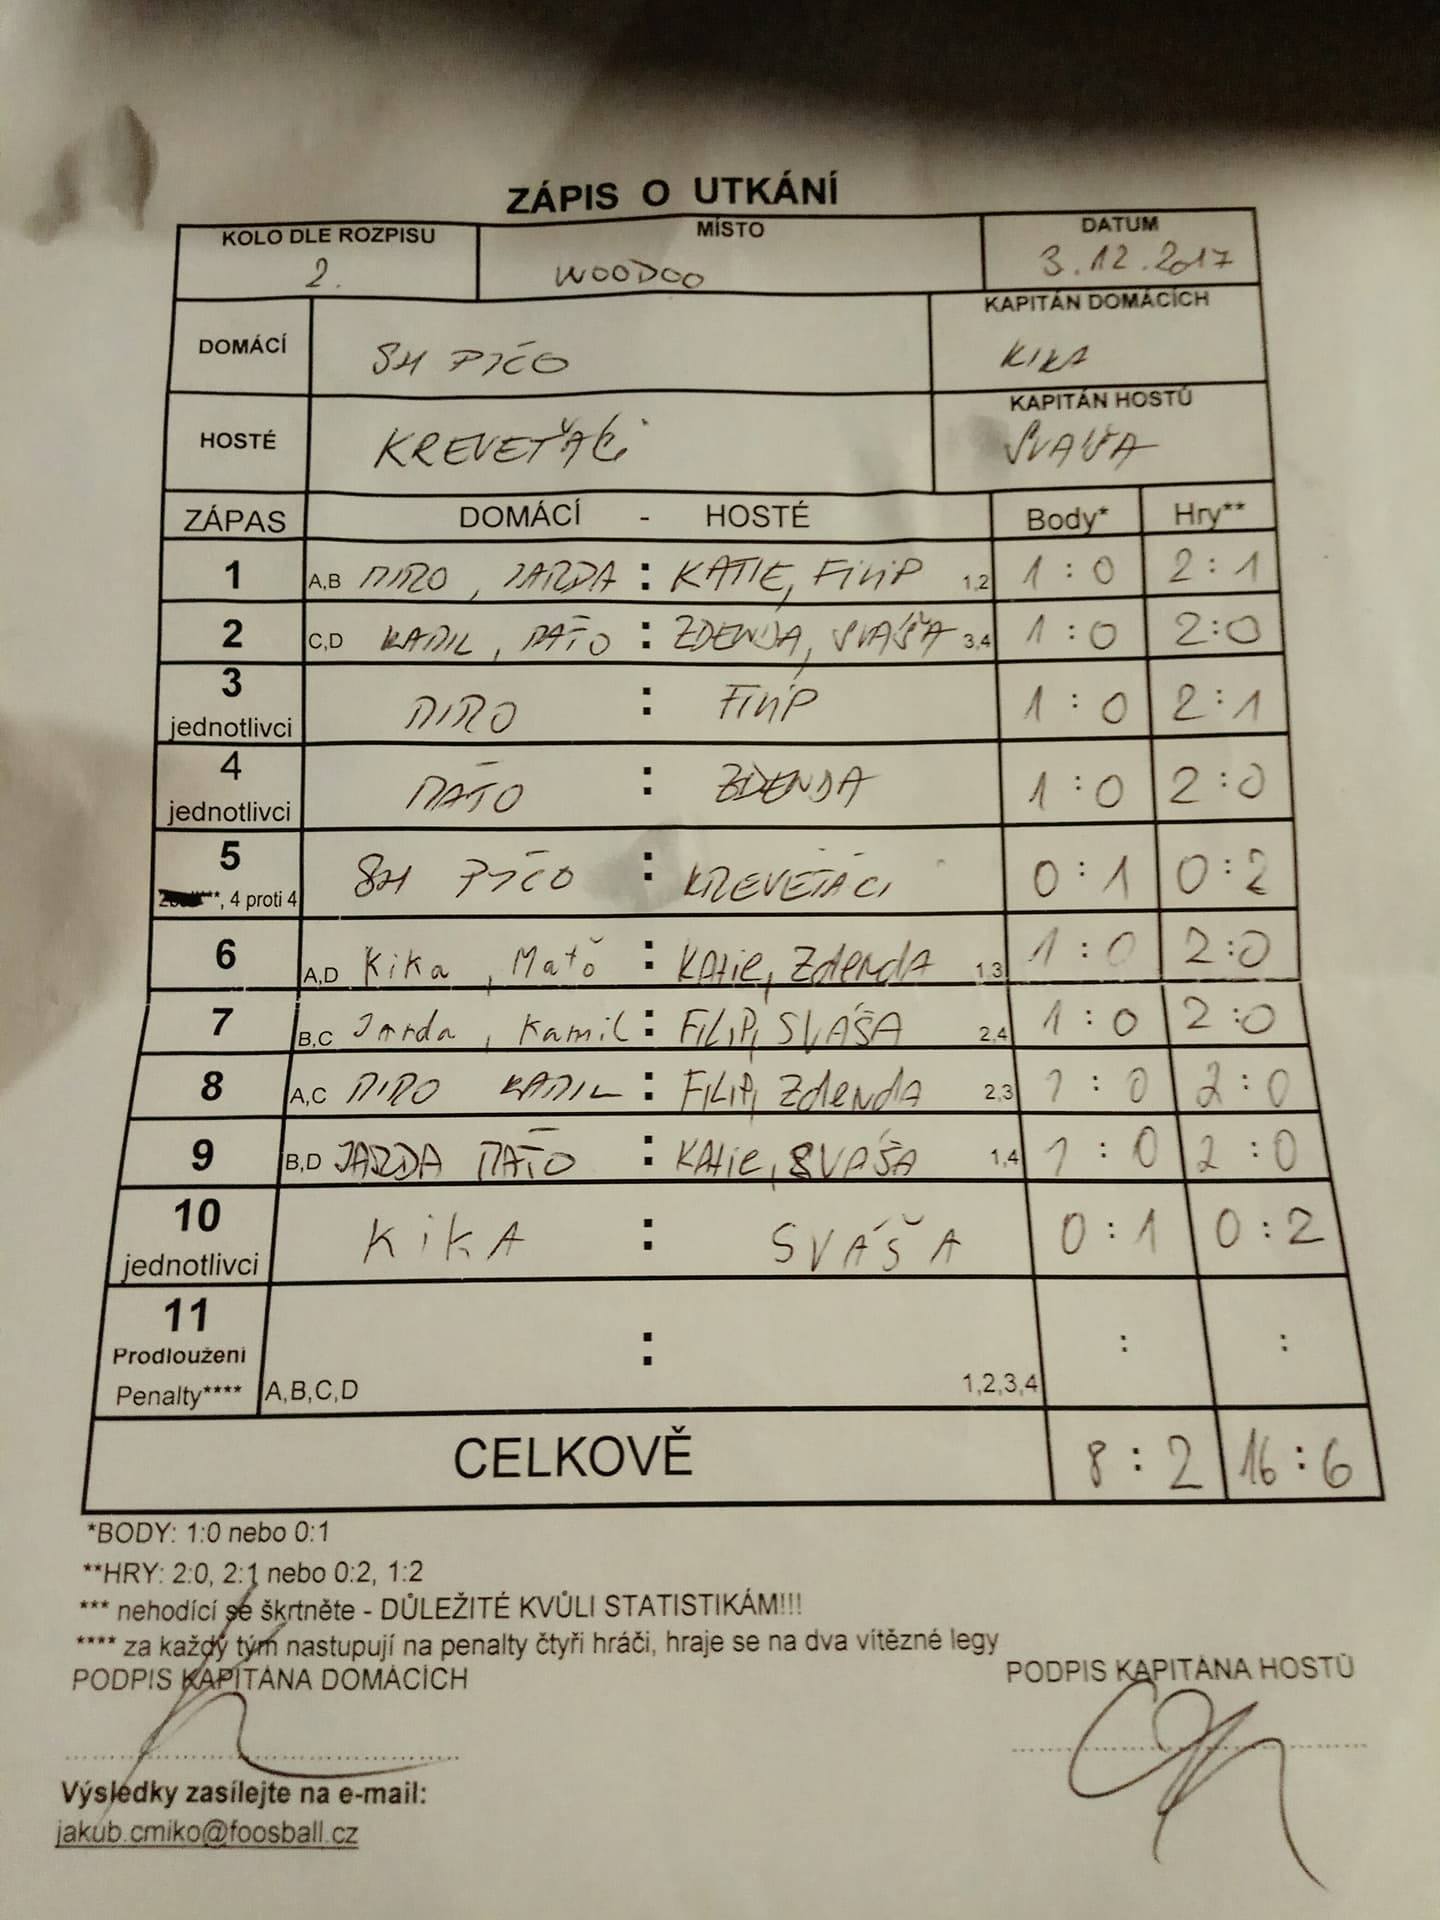 ZÁPIS O UTKÁNÍ
KOLO DLE ROZPISU MÍSTO DATUM
2. WOODOO 3.12.2017
DOMÁCÍ KAPITÁN DOMÁCÍCH
PÍČO KIKA
HOSTÉ KAPITÁN HOSTŮ
KREVEŤÁCI SVÁŠA
ZÁPAS DOMÁCÍ - HOSTÉ Body* Hry**
1 A,B MIRO, JARDA : KATIE, FILIP 1,2 1:0 2:1
2 C,D KAMIL, MAŤO : ZDENDA, SVÁŠA 3,4 1:0 2:0
3 jednotlivci MIRO : FILIP 1:0 2:1
4 jednotlivci MAŤO : ZDENDA 1:0 2:0
5 ***, 4 proti 4 PÍČO : KREVEŤÁCI 0:1 0:2
6 A,D Kika, Maťo : KATIE, Zdenda 1,3 1:0 2:0
7 B,C Jarda, Kamil : FILIP, SVÁŠA 2,4 1:0 2:0
8 A,C MIRO KAMIL : FILIP, Zdenda 2,3 1:0 2:0
9 B,D JARDA MAŤO : KATIE, SVÁŠA 1,4 1:0 2:0
10 jednotlivci KIKA : SVÁŠA 0:1 0:2
11
Prodloužení : : :
Penalty**** A,B,C,D 1,2,3,4
CELKOVĚ 8:2 16:6
*BODY: 1:0 nebo 0:1
**HRY: 2:0, 2:1 nebo 0:2, 1:2
*** nehodící se škrtněte - DŮLEŽITÉ KVŮLI STATISTIKÁM!!!
**** za každý tým nastupují na penalty čtyři hráči, hraje se na dva vítězné legy
PODPIS KAPITÁNA DOMÁCÍCH PODPIS KAPITÁNA HOSTŮ
Výsledky zasílejte na e-mail:
jakub.cmiko@foosball.cz